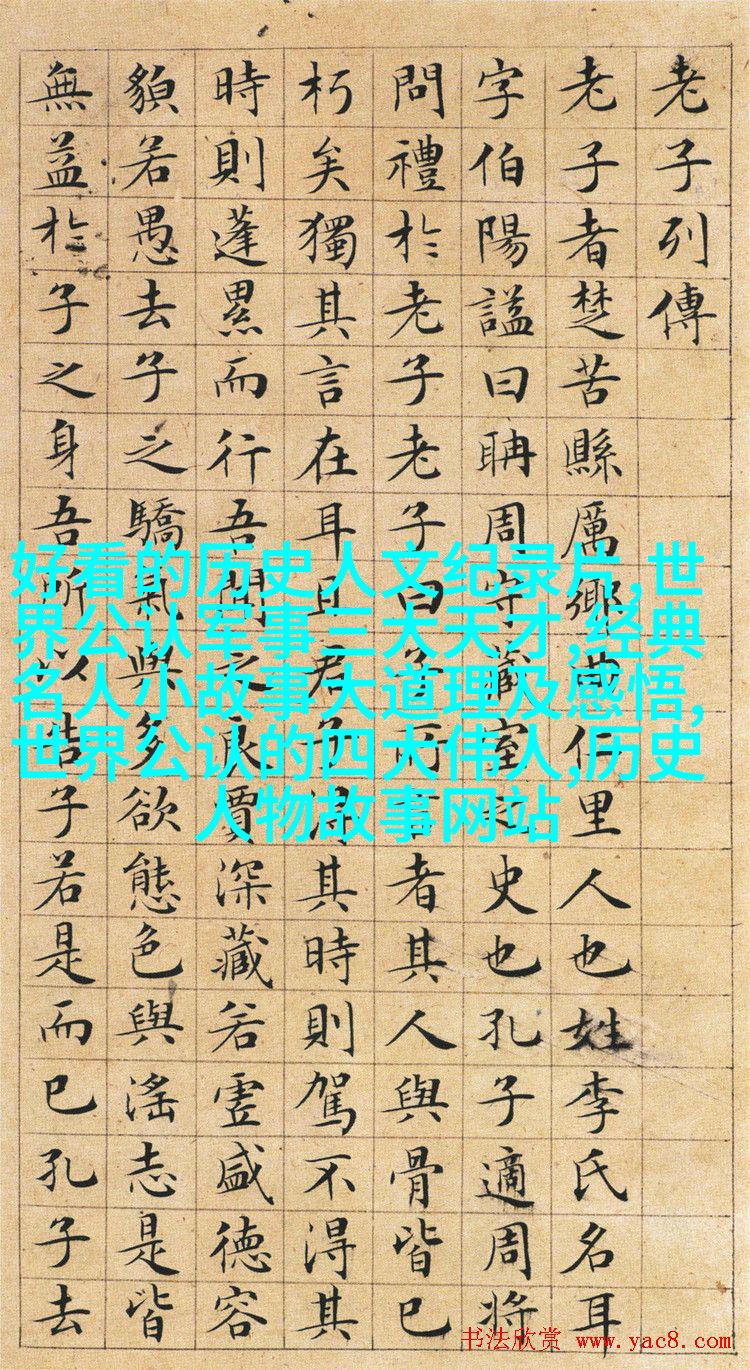 老子列傳
老子者楚苦縣厲鄉曲仁里人也姓李氏名耳
字伯陽謚曰聃周守藏室之史也孔子適周將
問禮於老子老子曰子所言者其人與骨皆已
朽矣獨其言在耳且君子得其時則駕不得其
時則蓬累而行吾聞之良賈深藏若虛盛德容
貌若愚去子之驕氣與多欲態色與淫志是皆
無益於子之身吾所以告子若是而已孔子去
好看的历史人文纪录片,世
界公认军事三大天才,经典
名人小故事大道理及感悟,
世界公认的四大伟人,历史
人物故事网站
书法欣赏 www.yac8.com